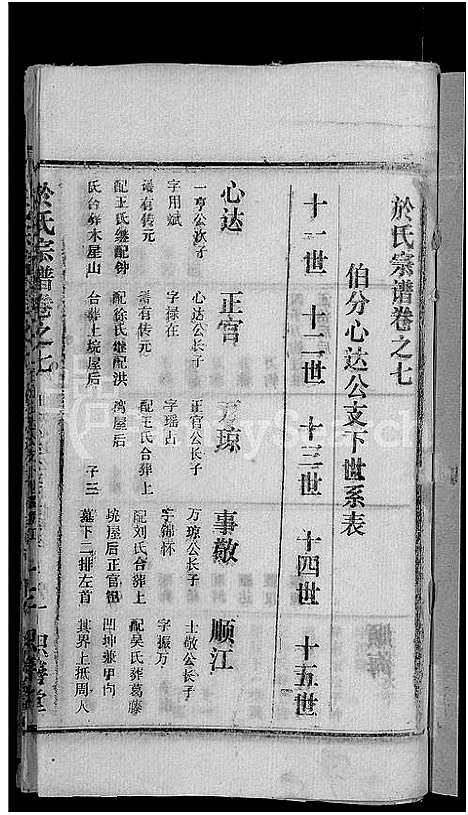 於氏宗谱卷之七
伯分心达公支下世系表
十一世 十二世 十三世 十四世 十五世
心达
一亨公次子
字用斌
谱有传元
配王氏继配钟
氏合葬木星山
正官
心达公长子
字禄在
谱有传元
配徐氏继配洪
合葬上垸屋后
万琼
正官公长子
字瑶占
配王氏合葬上
湾屋后
子三
事敬
万琼公长子
字锦怀
配刘氏合葬上
垸屋后正官
墓下二排左首
顺江
士敬公长子
字振万
配吴氏葬葛藤
凹坤兼甲向
其界上抵周人
於氏宗谱卷之七